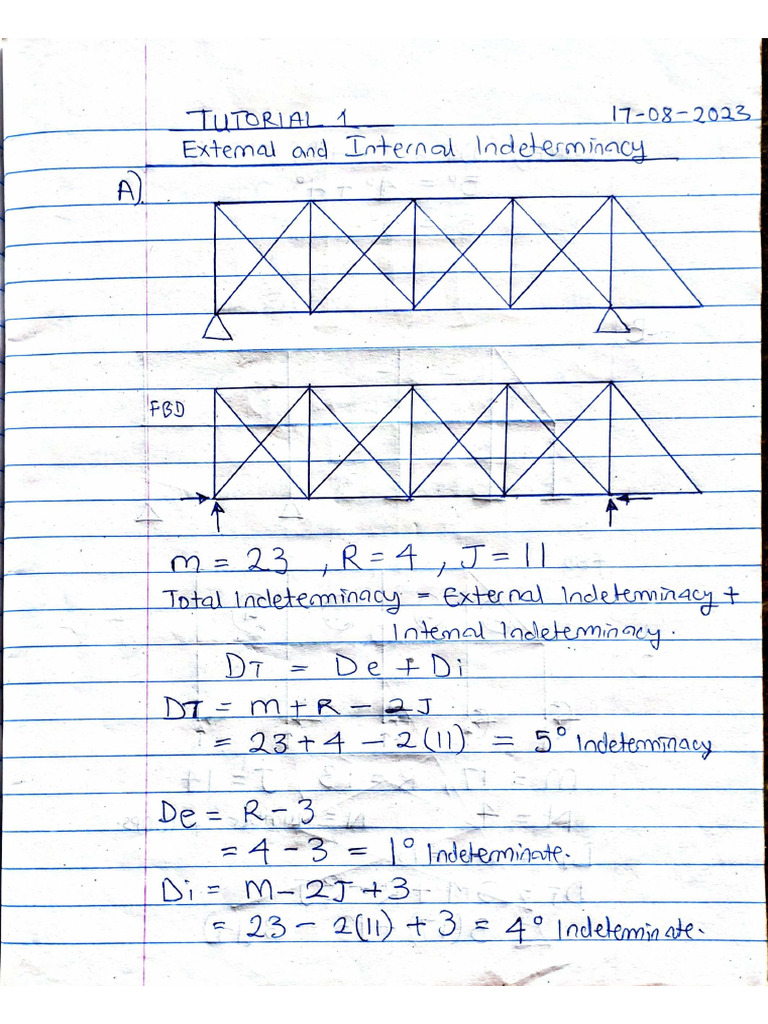 TUTORIAL 1 17-08-2023
External and Internal Indeterminacy
A).
FBD
m = 23 , R = 4 , J = 11
Total Indeterminacy = External Indeterminacy +
Internal Indeterminacy.
DT = De + Di
DT = m + R - 2J
= 23 + 4 - 2(11) = 5° Indeterminacy
De = R - 3
= 4 - 3 = 1° Indeterminate.
Di = M - 2J + 3
= 23 - 2(11) + 3 = 4° Indeterminate.